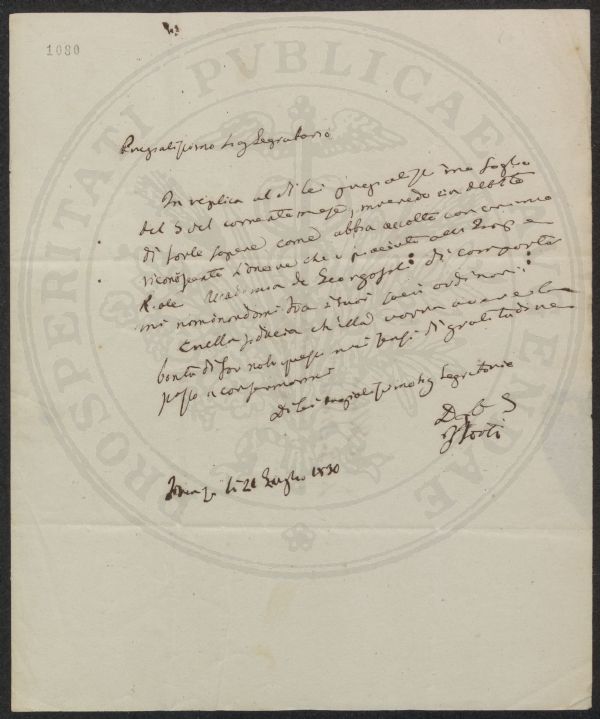 1080
PROSPERITATI PUBLICAE AUGENDAE
Pregiatissimo Sig Segretario
In replica al di Lei pregiatissimo foglio
del 5 del corrente mese, mi credo in debito
di farle sapere come abbia accolto con animo
riconoscente l'onore che è piaciuto alla
Reale Accademia de Georgofili di compartir
mi nominandomi tra i suoi Soci ordinari:
E nella fiducia ch'ella vorrà avere la
bontà di far noti questi miei sensi di gratitudine
passo a confermarmi
Di Lei pregiatissimo Sig Segretario
li 21 Luglio 1830